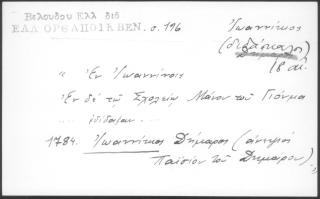 Βελουδου Ελλ διδ
ΕΛΛ ΟΡΘ ΑΠΟΙΚ ΒΕΝ. σ. 196
Ἰωαννίκιος
(διδάσκαλος)
Δημαρᾶς
18 αἰ.
" Ἐν Ἰωαννίνοις
Ἐν δὲ τῇ Σχολείῳ Μάνου τοῦ Γιόνμα
ἐδίδαξαν
1784. Ἰωαννίκιος Δήμαρος (ἀνεψιὸς
Παϊσίου τοῦ Δημάρου)